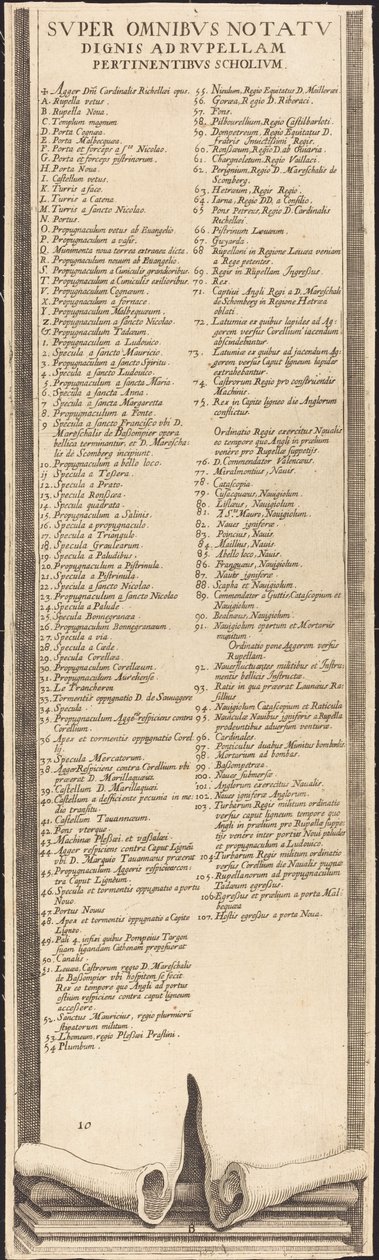 SVPER OMNIBVS NOTATV
DIGNIS AD RVPELLAM
PERTINENTIBVS SCHOLIVM.
✢ Agger Dni Cardinalis Richellai opus.
A. Rupella vetus.
B. Rupella Noua.
C. Templum magnum
D. Porta Cognea.
E. Porta Malbequea.
F. Porta et forceps a Sto Nicolao.
G. Porta et forceps pistrinorum.
H. Porta Noua.
I. Castellum vetus.
K. Turris a face.
L. Turris a Catena
M. Turris a sancto Nicolao.
N. Portus.
O. Propugnaculum vetus ab Euangelio.
P. Propugnaculum a vasis.
Q. Munimenta noua terrea extranea dicta.
R. Propugnaculum nouum ab Euangelio.
S. Propugnaculum a Cuniculis grandioribus.
T. Propugnaculum a Cuniculis exilioribus.
V. Propugnaculum Cognaeum.
X. Propugnaculum a fornace
Y. Propugnaculum Malbequaeum.
Z. Propugnaculum a sancto Nicolao
&. Propugnaculum Tadaeum.
1. Propugnaculum a Ludouico.
2. Specula a sancto Mauricio.
3. Propugnaculum a sancto Spiritu.
4. Specula a sancto Ludouico.
5. Propugnaculum a sancta Maria.
6. Specula a sancta Anna.
7. Specula a sancta Margaretta
8. Propugnaculum a Fonte.
9. Specula a sancto Francisco vbi D.
Mareschalis de Bassompier opera
bellica terminantur, et D. Maresca-
lis de Scomberg incipiunt.
10. Propugnaculum a bello loco.
11. Specula a Tessera.
12. Specula a Prato.
13. Specula Ronssea.
14. Specula quadrata.
15. Propugnaculum a Salinis.
16. Specula a propugnaculo.
17. Specula a Triangulo.
18. Specula Groulearum
19. Specula a Paludibus.
20. Propugnaculum a Pistrinula.
21. Specula a Pistrinula.
22. Specula a sancto Nicolao.
23. Propugnaculum a sancto Nicolao
24. Specula a Palude.
25. Specula Bonnegranea.
26. Propugnaculum Bonnegraneum.
27. Specula a via.
28. Specula a Caede.
29. Specula Corellaea.
30. Propugnaculum Corellaeum.
31. Propugnaculum Aurelianse.
32. Le Trancheron
33. Tormentis oppugnatio D. de Sauuagere
34. Specula.
35. Propugnaculum Aggeris respiciens contra
Corellium.
36. Apex et tormentis oppugnatio Corel
lij.
37. Specula Mercatorum.
38. Agger Respiciens contra Corellium vbi
praeerat D. Marillaquaeus.
39. Castellum D. Marillaquaei.
40. Castellum a deficiente pecunia in me-
dio transitu.
41. Castellum Tauanneum.
42. Pons vterque.
43. Machinae Plessaei et vassalaei.
44. Agger respiciens contra Caput Ligneũ
vbi D. Marquio Tauannaeus praeerat
45. Propugnaculum Aggeris respiciens con-
tra Caput Ligneum.
46. Specula et tormentis oppugnatio a portu
Nouo.
47. Portus Nouus
48. Apex et tormentis oppugnatio a Capite
Ligneo.
49. Pali 4. infixi quibus Pompeius Targon
suam ligandam Cathenam proposuerat
50. Canalis.
51. Louaea, Castrorum regio D. Mareschalis
de Bassompier vbi hospitem se fecit
Rex eo tempore quo Angli ad portus
ostium respiciens contra caput ligneum
accessere.
52. Sanctus Mauricius, regio plurimorũ
stipatorum militum.
53. Lhomeum, regio Plessaei Praslini.
54. Plumbum.
10
55. Nieulum, Regio Equitatus D. Maillerai.
56. Goraea, Regio D. Riboraci.
57. Fons.
58. Pilbourellium, Regio Castilbarloti.
59. Dompetreum, Regio Equitatus D.
fratris Inuictissimi Regis.
60. Ronsaium, Regio D. ab Quatra.
61. Chargnoletum, Regio Vaillaci.
62. Perignium, Regio D. Mareschalis de
Scomberg.
63. Hetraeum, Regis Regio.
64. Iarna, Regio DD. a Consilio.
65. Pons Petreus, Regio D. Cardinalis
Richellai.
66. Pistrinum Louaeum.
67. Guyarda.
68. Rupellani in Regione Louaea veniam
a Rege petentes.
69. Regis in Rupellam Ingressus
70. Rex
71. Captiui Angli Regi a D. Mareschali
de Schomberg in Regione Hetraea
oblati.
72. Latumiae ex quibus lapides ad Ag-
gerem versus Corellium iacendum
abscindebantur.
73. Latumiae ex quibus ad faciendum Ag-
gerem versus Caput ligneum lapides
extrahebantur.
74. Castrorum Regio pro construendis
Machinis.
75. Rex in Capite ligneo dis Anglorum
conflictus.
Ordinatio Regis exercitus Naualis
eo tempore quo Angli in praelium
venere pro Rupellae suppetijs.
76. D. Commendator Valencaeus.
77. Miralmontius, Nauis.
78. Catascopia
79. Cusacquaeus, Nauigiolum.
80. Lislaeus, Nauigiolum.
81. A Sto Mauro, Nauigiolum.
82. Naues igniferae.
83. Poincius, Nauis.
84. Maillius, Nauis.
85. Abello loco, Nauis.
86. Franquaeus, Nauigiolum.
87. Nauis igniferae.
88. Scapha et Nauigiolum.
89. Commendator a Guttis, Catascopium et
Nauigiolum.
90. Bealnaeus, Nauigiolum.
91. Nauigiolum opertum et Mortarijs
munitum.
Ordinatio pone Aggerem versus
Rupellam.
92. Naues fluctuantes militibus et Instru-
mentis bellicis Instructae.
93. Rate in qua praeerat Launaeus Ra-
sillius
94. Nauigiolum Catascopium et Raticula
95. Nauiculae Nauibus igniferis a Rupella
prodeuntibus aduersum venturae.
96. Cardinales.
97. Ponticulus duabus Munitus bombardis
98. Mortarium ad bombas.
99. Bassompetraea.
100. Naues submersae.
101. Anglorum exercitus Naualis.
102. Naues igniferae Anglorum.
103. Turbarum Regis militum ordinatio
versus caput ligneum tempore quo
Angli in praelium pro Rupellae suppe-
tijs venere inter portum Noui paludes
et propugnaculum a Ludouico.
104. Turbarum Regis militum ordinatio
versus Corellium die Naualis pugnae
105. Rupellanorum ad propugnaculum
Tadaeum egressus.
106. Egressus et praelium a porta Mal-
bequaea
107. Hostis egressus a porta Noua.
B